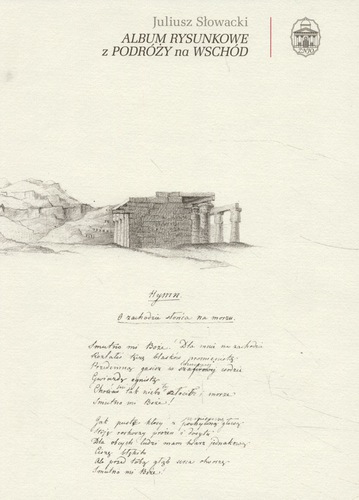 Juliusz Słowacki
ALBUM RYSUNKOWE
z PODRÓŻY na WSCHÓD
ZNiO
Hymn.
O zachodzie słońca na morzu.
Smutno mi Boże! Dla mnie na zachodzie
Rozlałeś tęczę blasków promienistą
Przedemną gasisz w wodzie
Gwiazdę ognistą
Choć tak niebo złocisz i morze
Smutno mi Boże!
Jak puste kłosy z głową
Stoję rozkoszy prożen i dosytu
Dla obcych ludzi mam twarz jednakową
Ciszę błękitu
Ale przed tobą głąb serca otworzę
Smutno mi Boże!